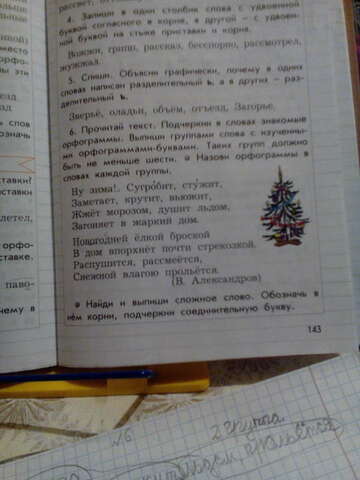 рассвет,
4. Запиши в один столбик слова с удвоенной
буквой согласного в корне, а другой – с удвоен-
ной буквой на стыке приставки и корня.
Вожжи, грипп, рассказ, бесспорно, рассмотрел,
жужжал.
5. Спиши. Объясни графически, почему в одних
словах написан разделительный ъ, а в других – раз-
делительный ь.
Зверьё, оладьи, объём, отъезд, Загорье.
6. Прочитай текст. Подчеркни в словах знакомые
орфограммы. Выпиши группами слова с изученны-
ми орфограммами-буквами. Таких групп должно
быть не меньше шести. Назови орфограммы в
словах каждой группы.
Ну зима!.. Сугробит, стужит,
Заметает, крутит, вьюжит,
Жжёт морозом, душит льдом,
Загоняет в жаркий дом.
Новогодней ёлкой броской
В дом впорхнёт почти стрекозкой,
Распушится, рассмеётся,
Снежной влагою прольётся.
(В. Александров)
Найди и выпиши сложное слово. Обозначь в
нём корни, подчеркни соединительную букву.
143
ной)
место
фо-
эти
езд
слов
значь
тавки?
ставки
летел,
орфо-
ставке.
паво-
чему в
№6
2 группа